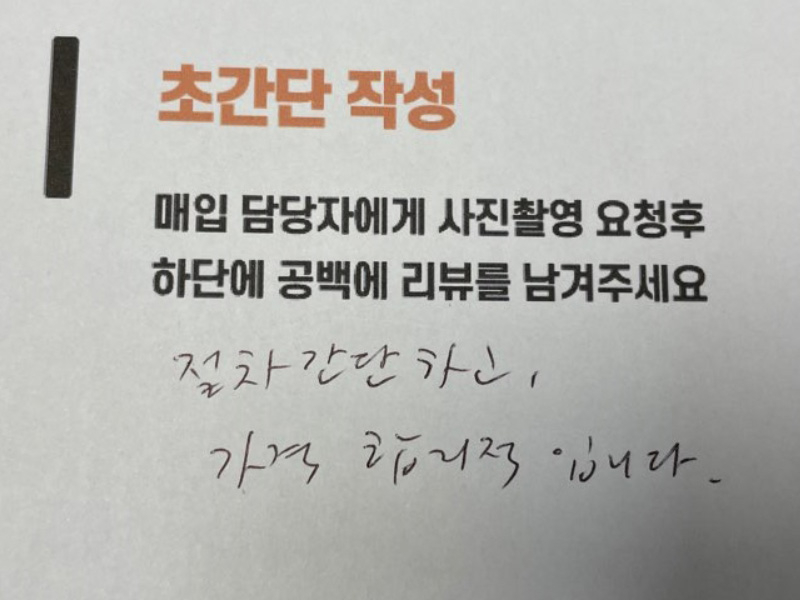 초간단 작성
매입 담당자에게 사진촬영 요청후
하단에 공백에 리뷰를 남겨주세요
절차 간단하고,
가격 합리적 입니다.